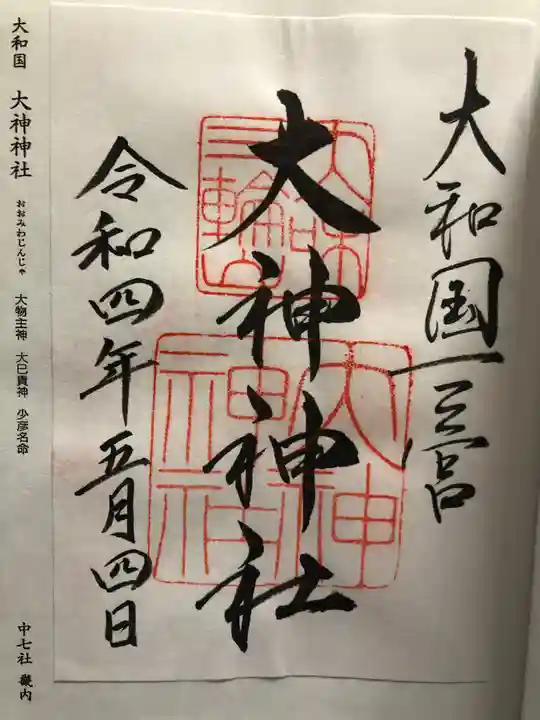 大和国一之宮
大神神社
令和四年五月四日
三輪山
大神神社
大和国 大神神社 おおみわじんじゃ 大物主神 大巳貴神 少彦名命
中七社 畿内